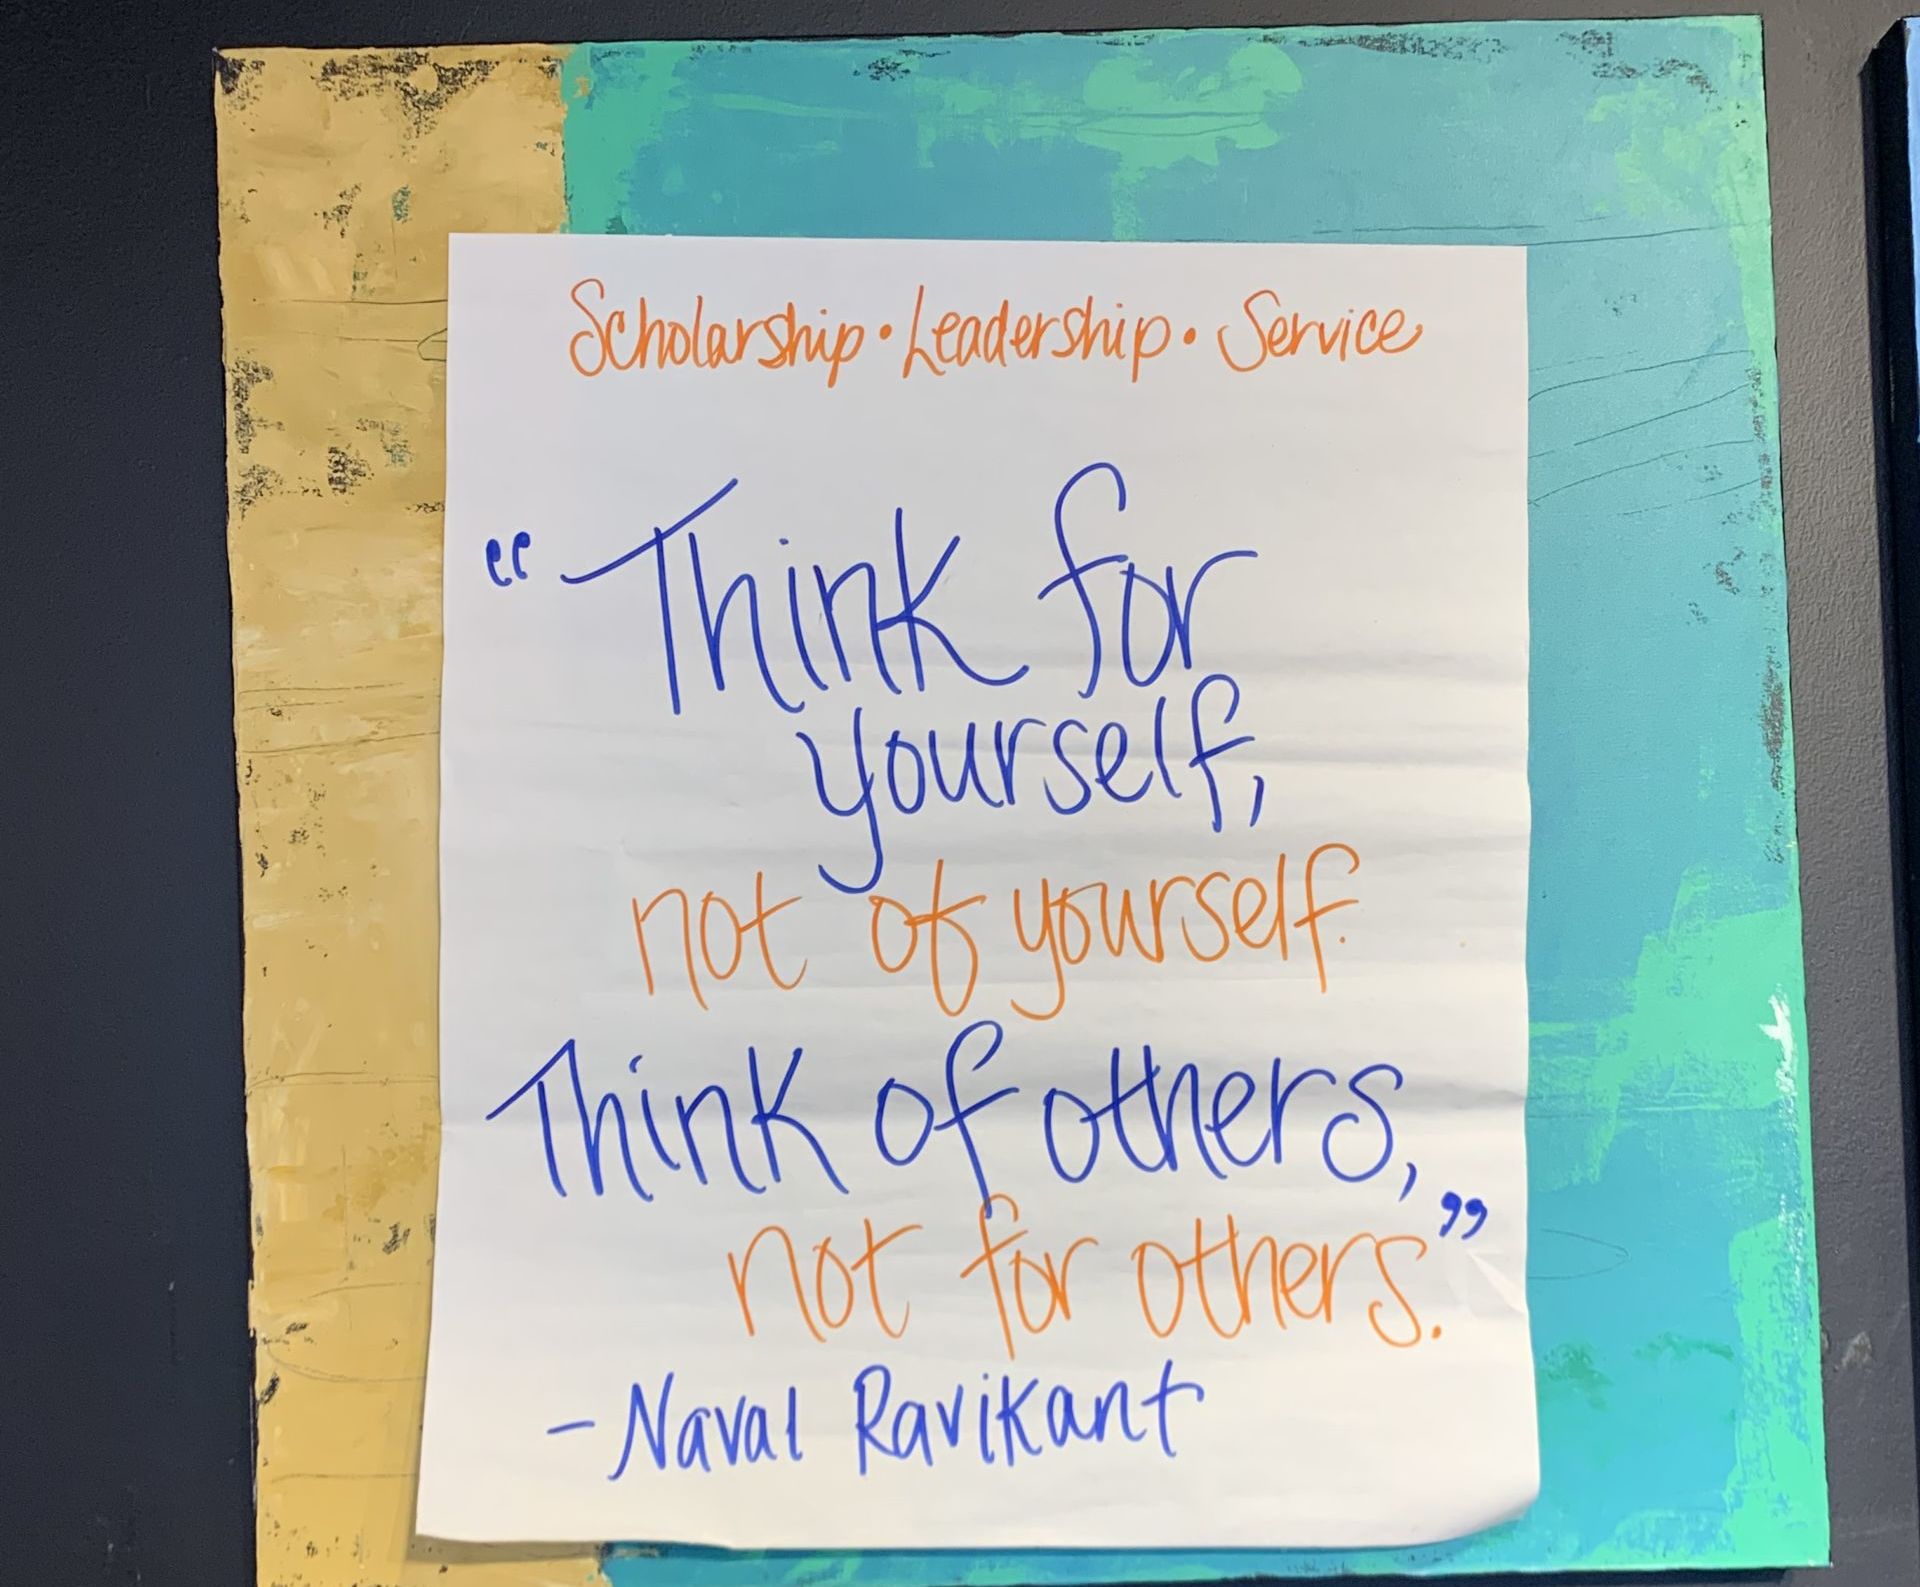 Scholarship • Leadership • Service
“Think for
yourself,
not of yourself.
Think of others,
not for others.”
- Naval Ravikant